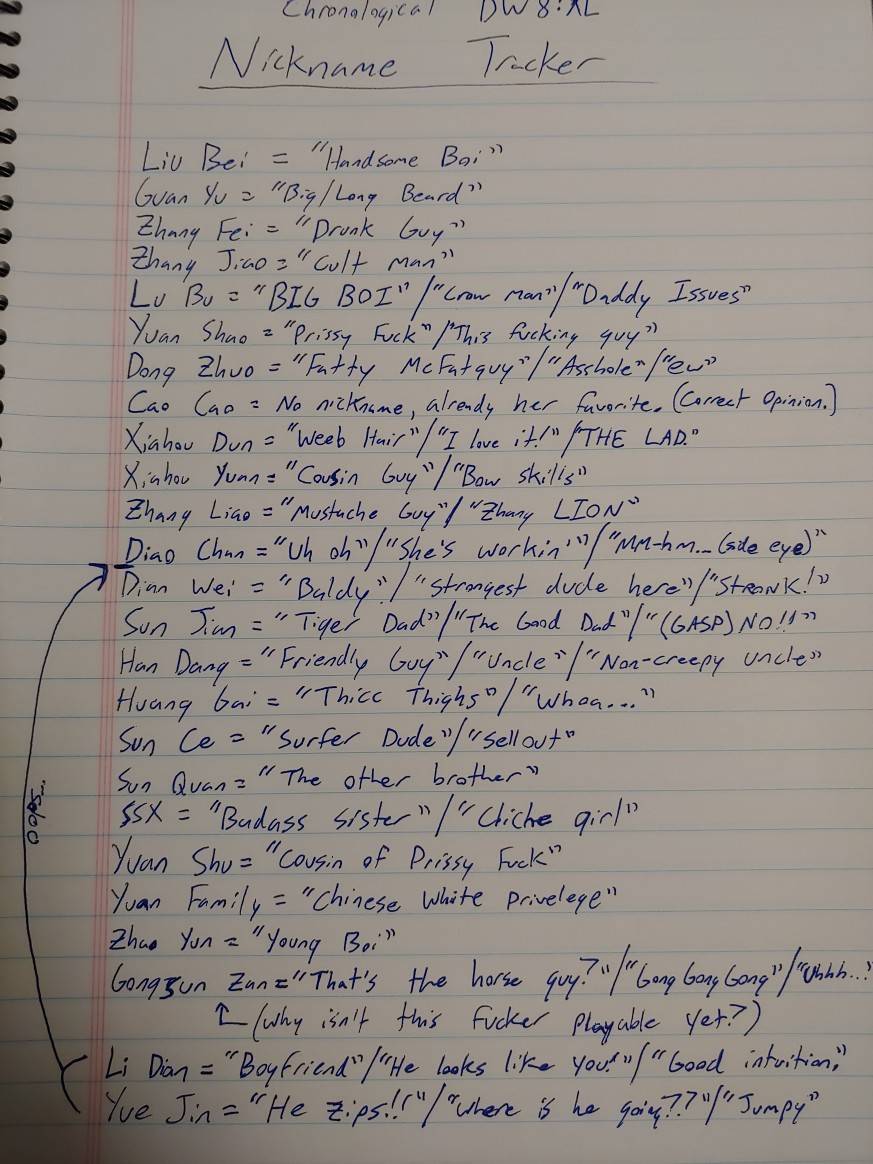 Chronological DW8:XL
Nickname Tracker
Liu Bei = "Handsome Boi"
Guan Yu = "Big/Long Beard"
Zhang Fei = "Drunk Guy"
Zhang Jiao = "Cult Man"
Lu Bu = "BIG BOI"/"Crow Man"/"Daddy Issues"
Yuan Shao = "Prissy Fuck"/"This fucking guy"
Dong Zhuo = "Fatty McFatguy"/"Asshole"/"ew"
Cao Cao = No nickname, already her favorite. (Correct Opinion.)
Xiahou Dun = "Weeb Hair"/"I love it!"/"THE LAD."
Xiahou Yuan = "Cousin Guy"/"Bow skills"
Zhang Liao = "Mustache Guy"/"Zhang LION"
Diao Chan = "Uh oh"/"She's workin'"/"MM-hm... (side eye)"
Dian Wei = "Baldy"/"Strongest dude here"/"STRONK!"
Sun Jian = "Tiger Dad"/"The Good Dad"/"(GASP) NO!!"
Han Dang = "Friendly Guy"/"Uncle"/"Non-creepy uncle"
Huang Gai = "Thicc Thighs"/"Whoa..."
Sun Ce = "Surfer Dude"/"Sellout"
Sun Quan = "The other brother"
SSX = "Badass sister"/"Cliche girl"
Yuan Shu = "Cousin of Prissy Fuck"
Yuan Family = "Chinese White Privelege"
Zhao Yun = "Young Boi"
Gongsun Zan = "That's the horse guy?"/"Gong Gong Gong"/"Uhhh..?
(Why isn't this fucker playable yet?)
Li Dian = "Boyfriend"/"He looks like you!"/"Good intuition."
Yue Jin = "He zips!!"/"Where is he going??"/"Jumpy"